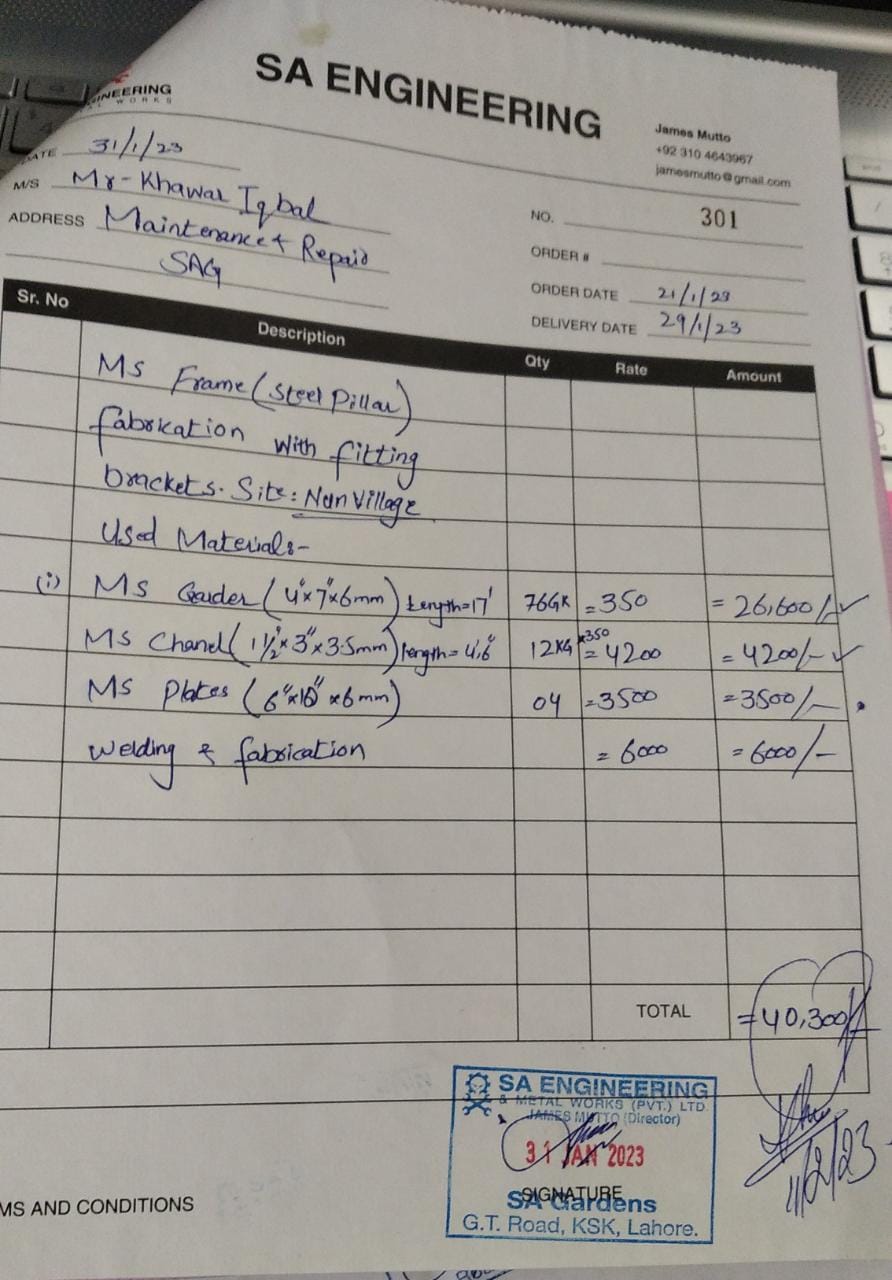 SA ENGINEERING
INEERING
WORKS
James Mutto
+92 310 4643967
jamesmutto@gmail.com
DATE 31/1/23
M/S Mr-Khawar Iqbal
ADDRESS Maintenance & Repair
SAG
NO. 301
ORDER #
ORDER DATE 21/1/23
DELIVERY DATE 29/1/23
Sr. No Description Qty Rate Amount
Ms Frame (Steel Pillar)
fabrication with fitting
brackets. Site: Nun Village
Used Materials:-
(i) MS Gauder (4"x7"x6mm) Length=17' 76GK =350 = 26,600/-
MS Chanel (1 1/2"x3"x3.5mm) length=4'6" 12KG x350 =4200 =4200/-
MS Plates (6"x10"x6mm) 04 =3500 =3500/-
Welding & fabrication = 6000 = 6000/-
TOTAL =40,300/-
SA ENGINEERING
& METAL WORKS (PVT.) LTD.
JAMES MUTTO (Director)
31 JAN 2023
SIGNATURE
SA Gardens
G.T. Road, KSK, Lahore.
1/2/23
MS AND CONDITIONS